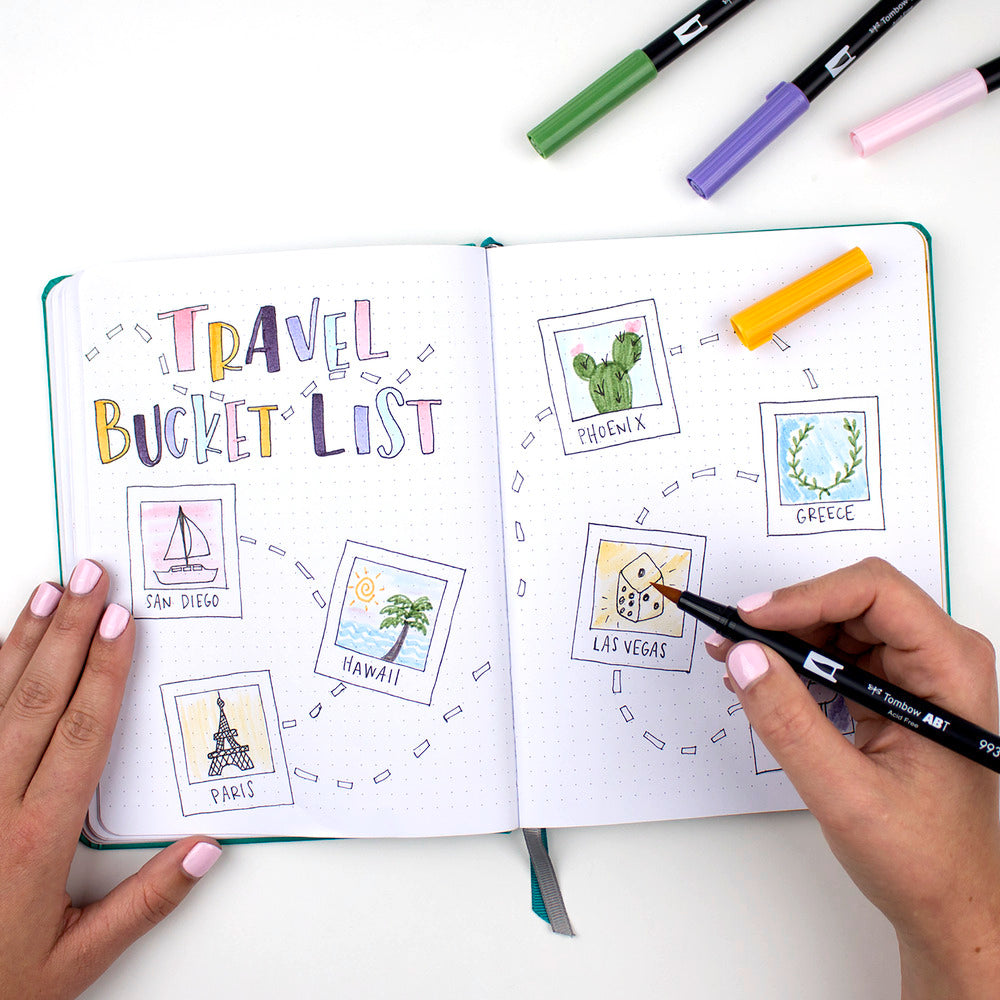 TRAVEL
BUCKET LIST
SAN DIEGO
HAWAII
PARIS
PHOENIX
GREECE
LAS VEGAS
Tombow
Tombow ABT
Acid Free
993